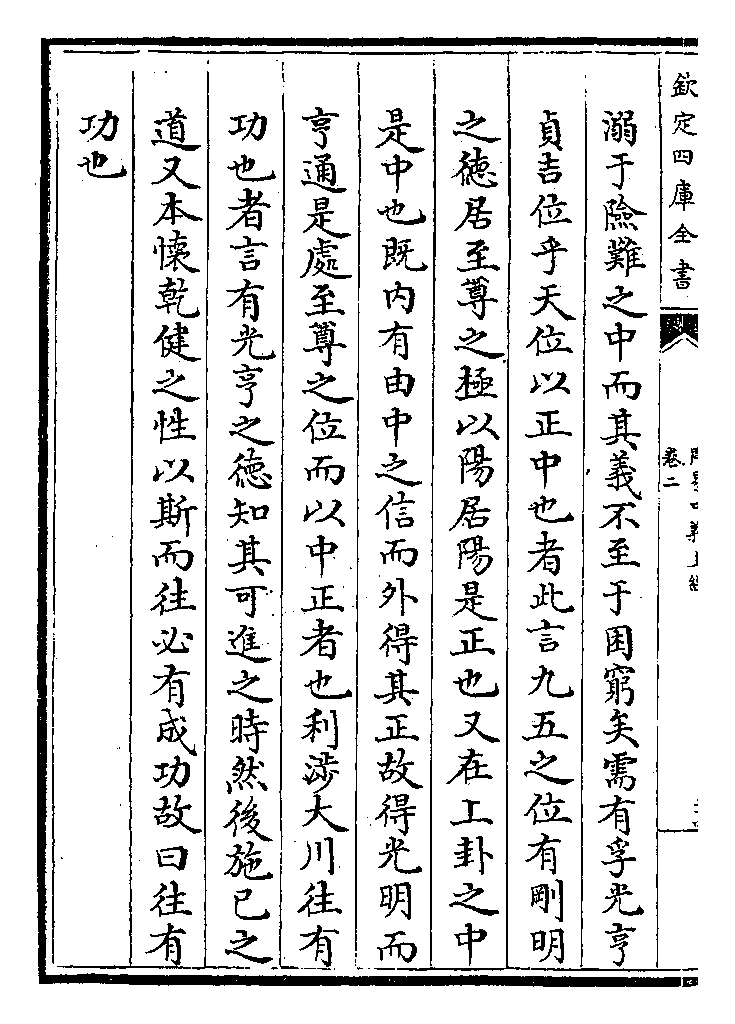 欽定四庫全書
卷二
溺于險難之中而其義不至于困窮矣需有孚光亨
貞吉位乎天位以正中也者此言九五之位有剛明
之德居至尊之極以陽居陽是正也又在上卦之中
是中也既内有由中之信而外得其正故得光明而
亨通是處至尊之位而以中正者也利渉大川往有
功也者言有光亨之德知其可進之時然後施已之
道又本懐乾健之性以斯而往必有成功故曰往有
功也